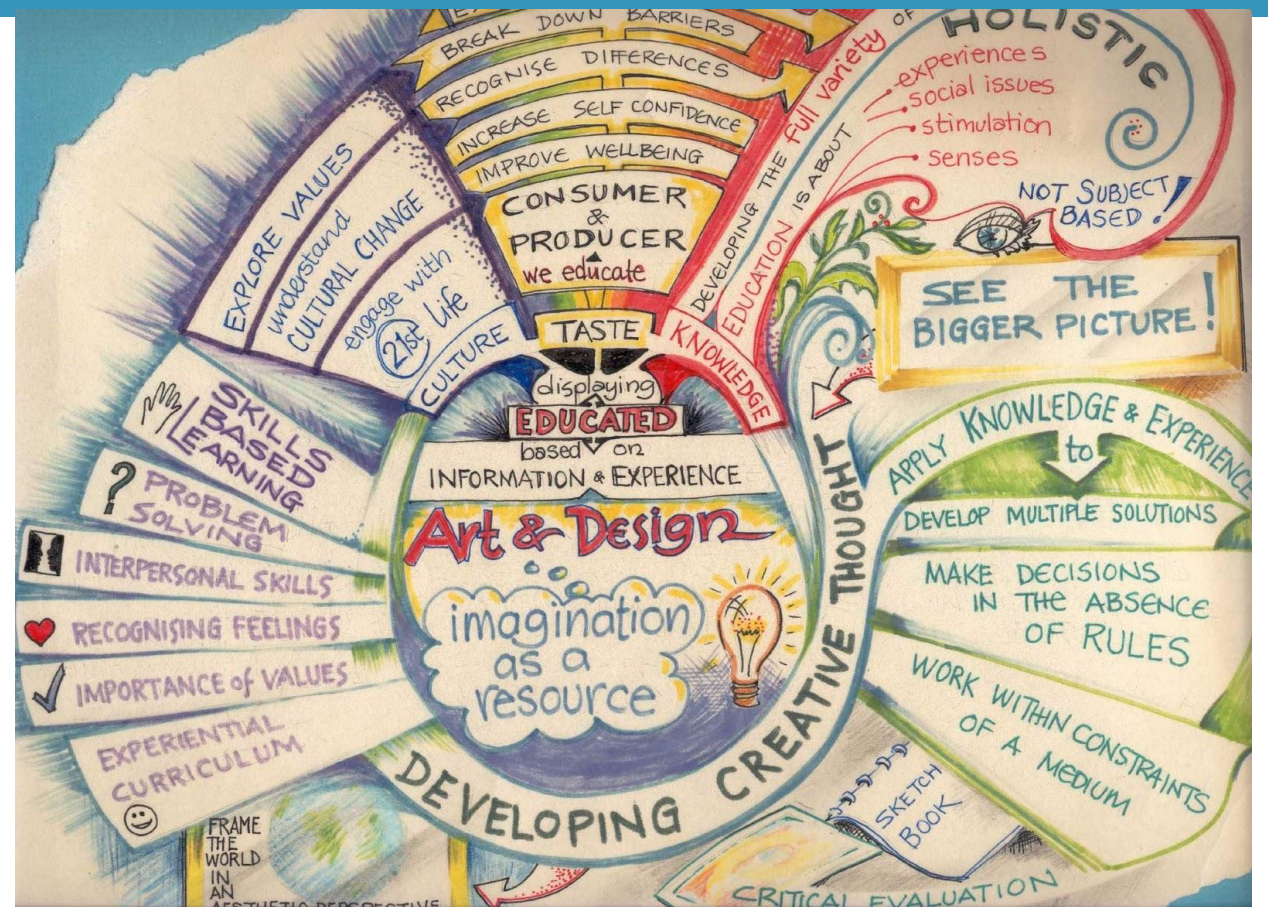 BREAK DOWN BARRIERS
RECOGNISE DIFFERENCES
INCREASE SELF CONFIDENCE
IMPROVE WELLBEING
CONSUMER
&
PRODUCER
we educate
TASTE
displaying
EDUCATED
based on
INFORMATION & EXPERIENCE
Art & Design
imagination
as a
resource
DEVELOPING CREATIVE THOUGHT
EXPLORE VALUES
understand
CULTURAL CHANGE
engage with
21st life
CULTURE
SKILLS
BASED
LEARNING
?
PROBLEM
SOLVING
INTERPERSONAL SKILLS
RECOGNISING FEELINGS
IMPORTANCE of VALUES
EXPERIENTIAL
CURRICULUM
FRAME
THE
WORLD
IN
AN
AESTHETIC PERSPECTIVE
KNOWLEDGE
DEVELOPING THE full variety OF
EDUCATION IS ABOUT
HOLISTIC
experiences
social issues
stimulation
senses
NOT SUBJECT
BASED!
SEE THE
BIGGER PICTURE!
APPLY KNOWLEDGE & EXPERIENCE
to
DEVELOP MULTIPLE SOLUTIONS
MAKE DECISIONS
IN THE ABSENCE
OF RULES
WORK WITHIN CONSTRAINTS
OF A MEDIUM
SKETCH
BOOK
CRITICAL EVALUATION